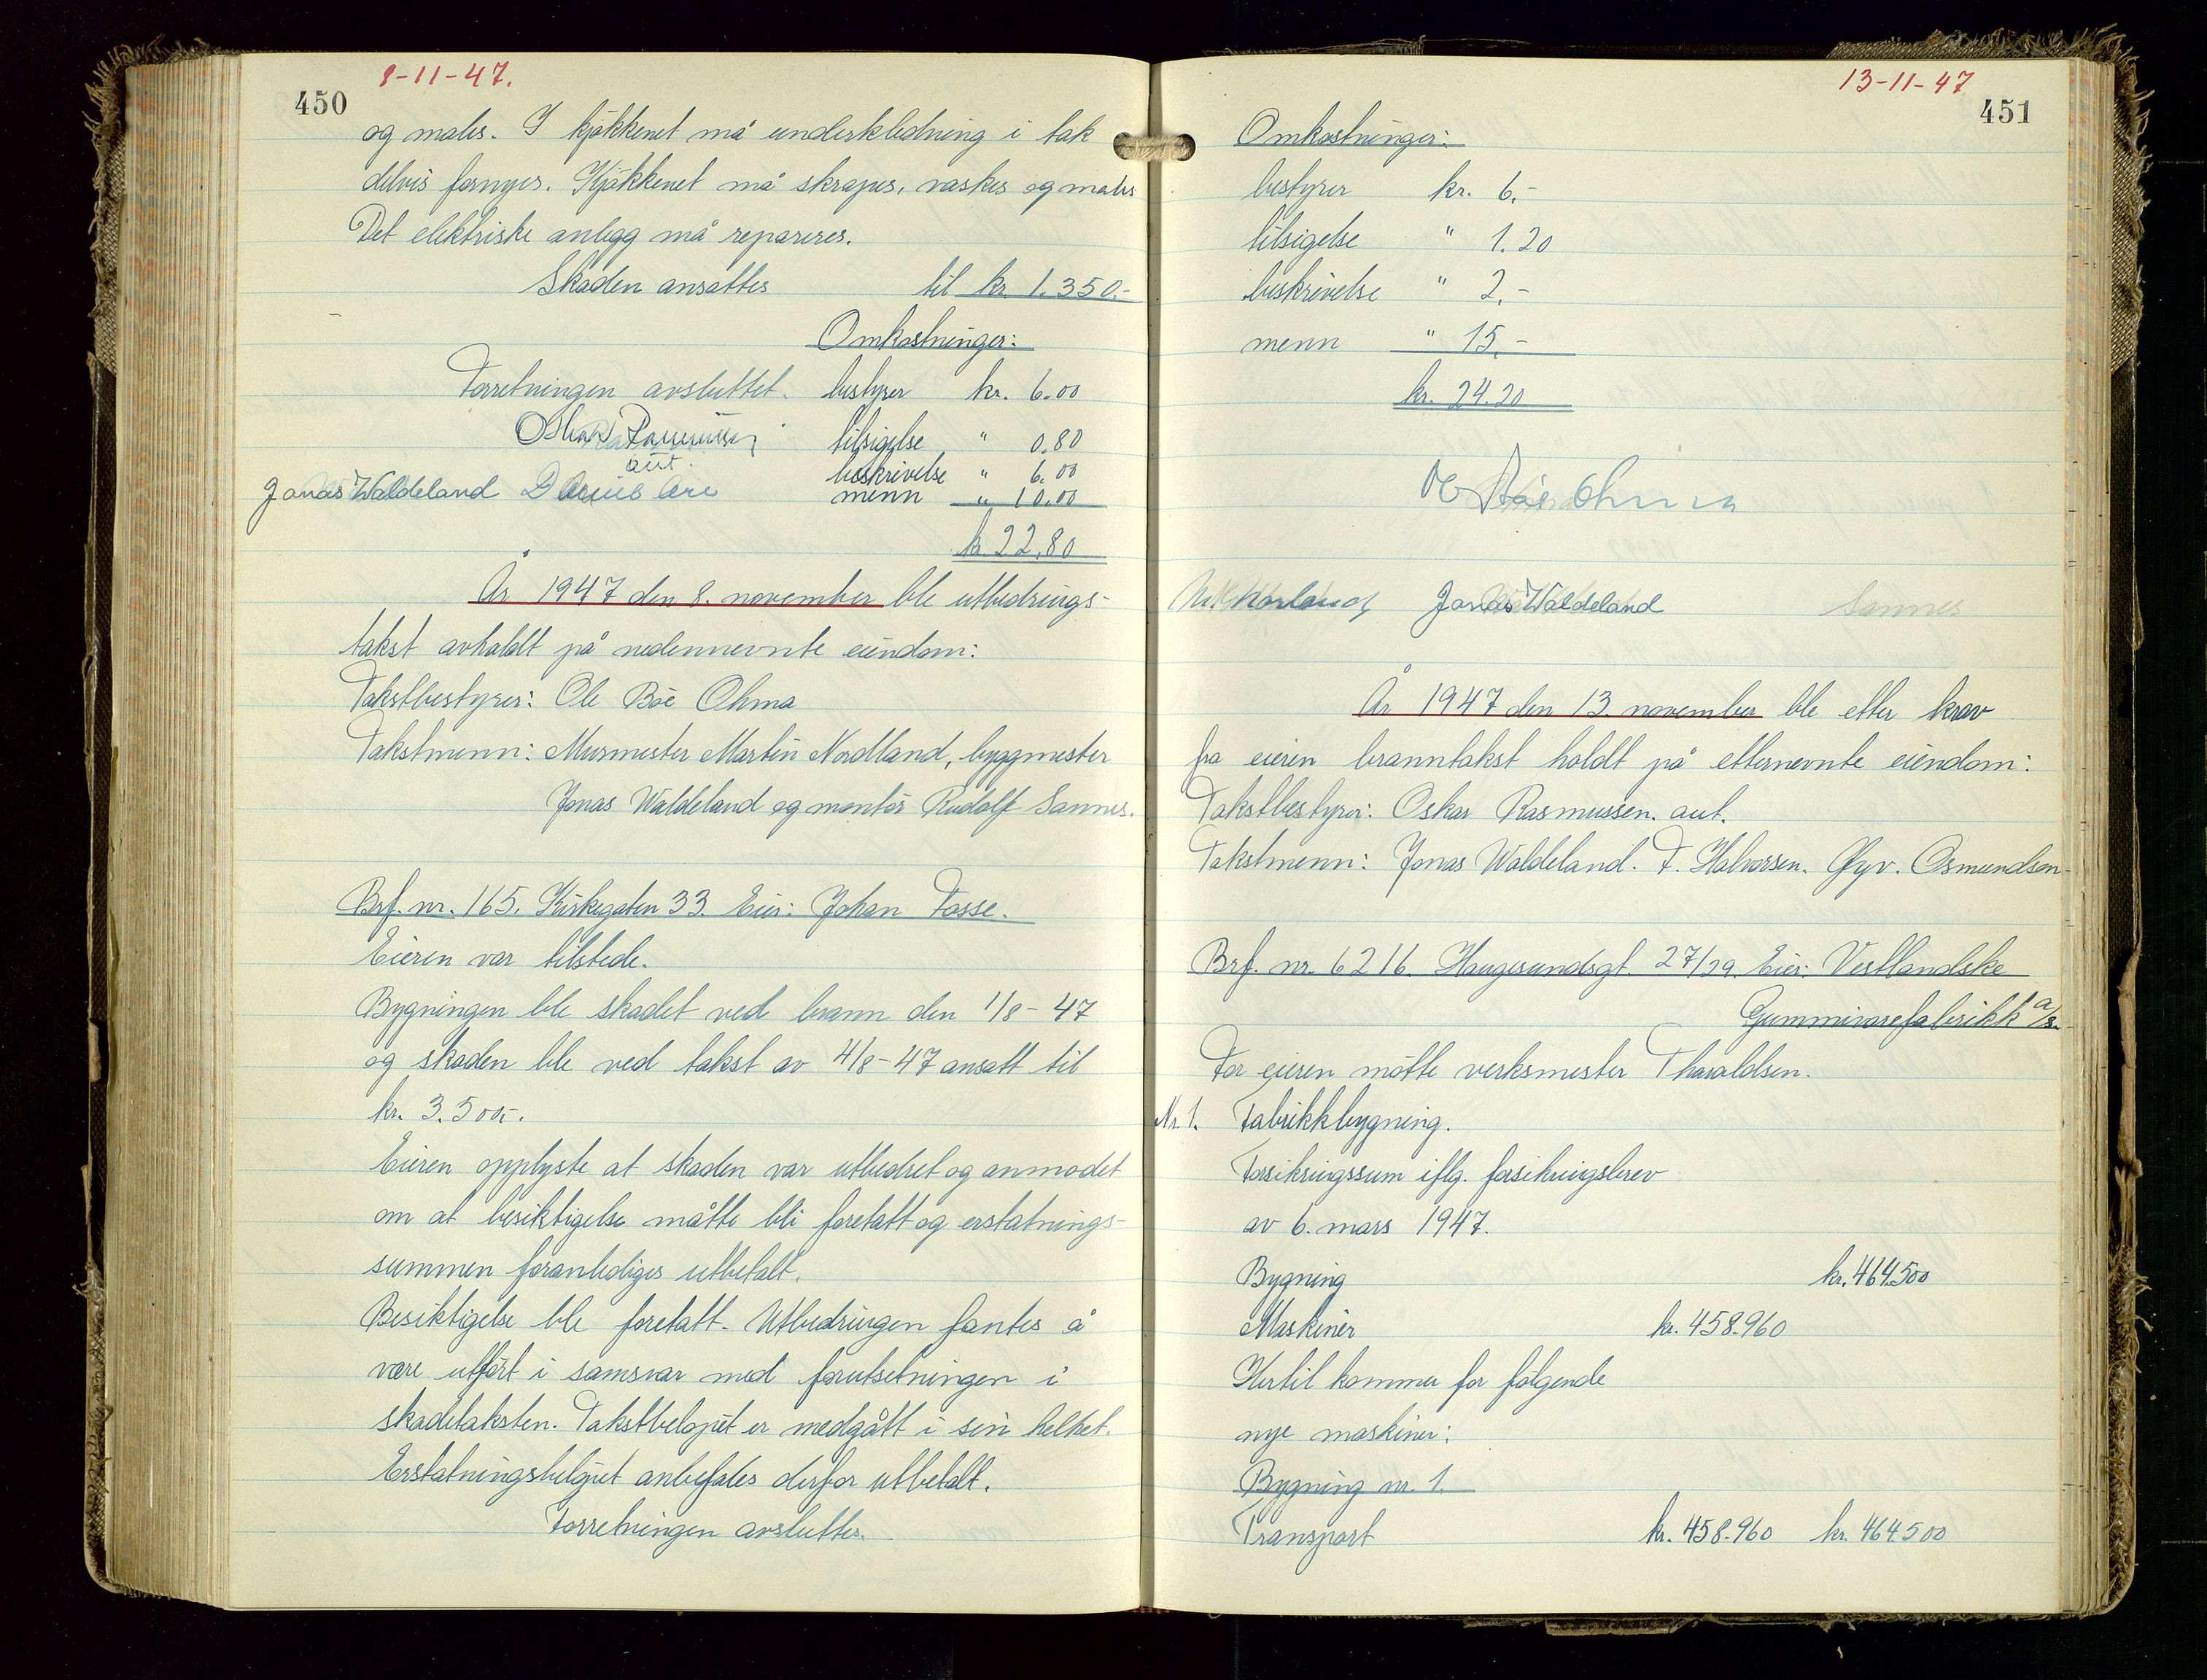 8-11-47.
450
og males. I kjøkkenet må underkledning i tak
delvis fornyes. Kjøkkenet må skrapes, vaskes og males
Det elektriske anlegg må repareres.
Skaden ansattes til kr. 1.350.-
Omkostninger:
Forretningen avsluttet. bestyrer kr. 6.00
Oskar Rasmussen tilsigelse " 0.80
aut.
beskrivelse " 6.00
Jonas Waldeland menn " 10.00
kr. 22,80
År 1947 den 8. november ble utbedrings-
takst avholdt på nedennevnte eiendom:
Takstbestyrer: Ole Bøe Ohma
Takstmenn: Murmester Martin Nordland, byggmester
Jonas Waldeland og montør Rudolf Sannes.
Brf. nr. 165. Kirkegaten 33. Eier: Johan Fosse.
Eieren var tilstede.
Bygningen ble skadet ved brann den 1/8-47
og skaden ble ved takst av 4/8-47 ansatt til
kr. 3.500.-.
Eieren opplyste at skaden var utbedret og anmodet
om at besiktigelse måtte bli foretatt og erstatnings-
summen foranlediges utbetalt.
Besiktigelse ble foretatt. Utbedringen fantes å
være utført i samsvar med forutsetningen i
skadetaksten. Takstbeløpet er medgått i sin helhet.
Erstatningsbeløpet anbefales derfor utbetalt.
Forretningen avsluttes.
13-11-47
451
Omkostninger:
bestyrer kr. 6.-
tilsigelse " 1.20
beskrivelse " 2.-
menn " 15.-
kr. 24.20
O Bøe Ohma
M. Nordland Jonas Waldeland Sannes
År 1947 den 13. november ble etter krav
fra eieren branntakst holdt på etternevnte eiendom:
Takstbestyrer: Oskar Rasmussen. aut.
Takstmenn: Jonas Waldeland. F. Halvorsen. Gyv. Osmundsen
Brf. nr. 6216. Haugesundsgt. 27/29. Eier: Vestlandske
Gummivarefabrikk a/s.
For eieren møtte verksmester Tharaldsen.
Nr. 1. Fabrikkbygning.
Forsikringssum iflg. forsikringsbrev
av 6. mars 1947.
Bygning kr. 464.500
Maskiner kr. 458.960
Hertil kommer for følgende
nye maskiner:
Bygning nr. 1.
Transport kr. 458.960 kr. 464.500